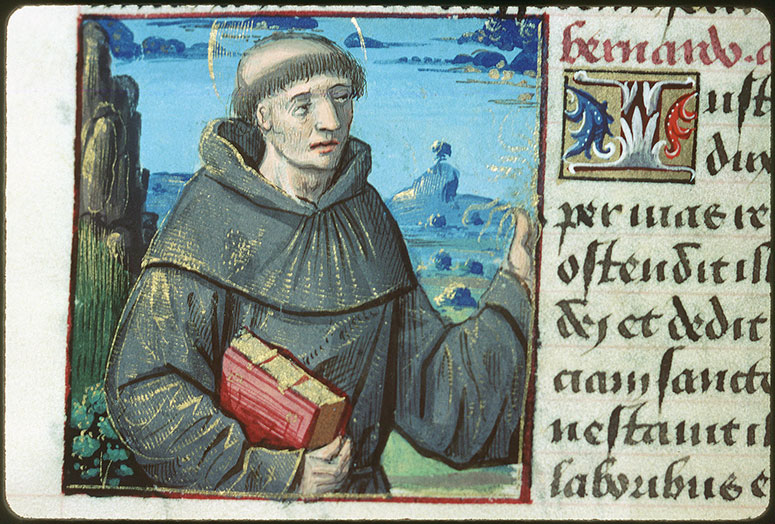 bernardo. a
Iust
dux
per uias re
ostendit il
dej et dedit
ciam sancto
nestauit il
laboribus e